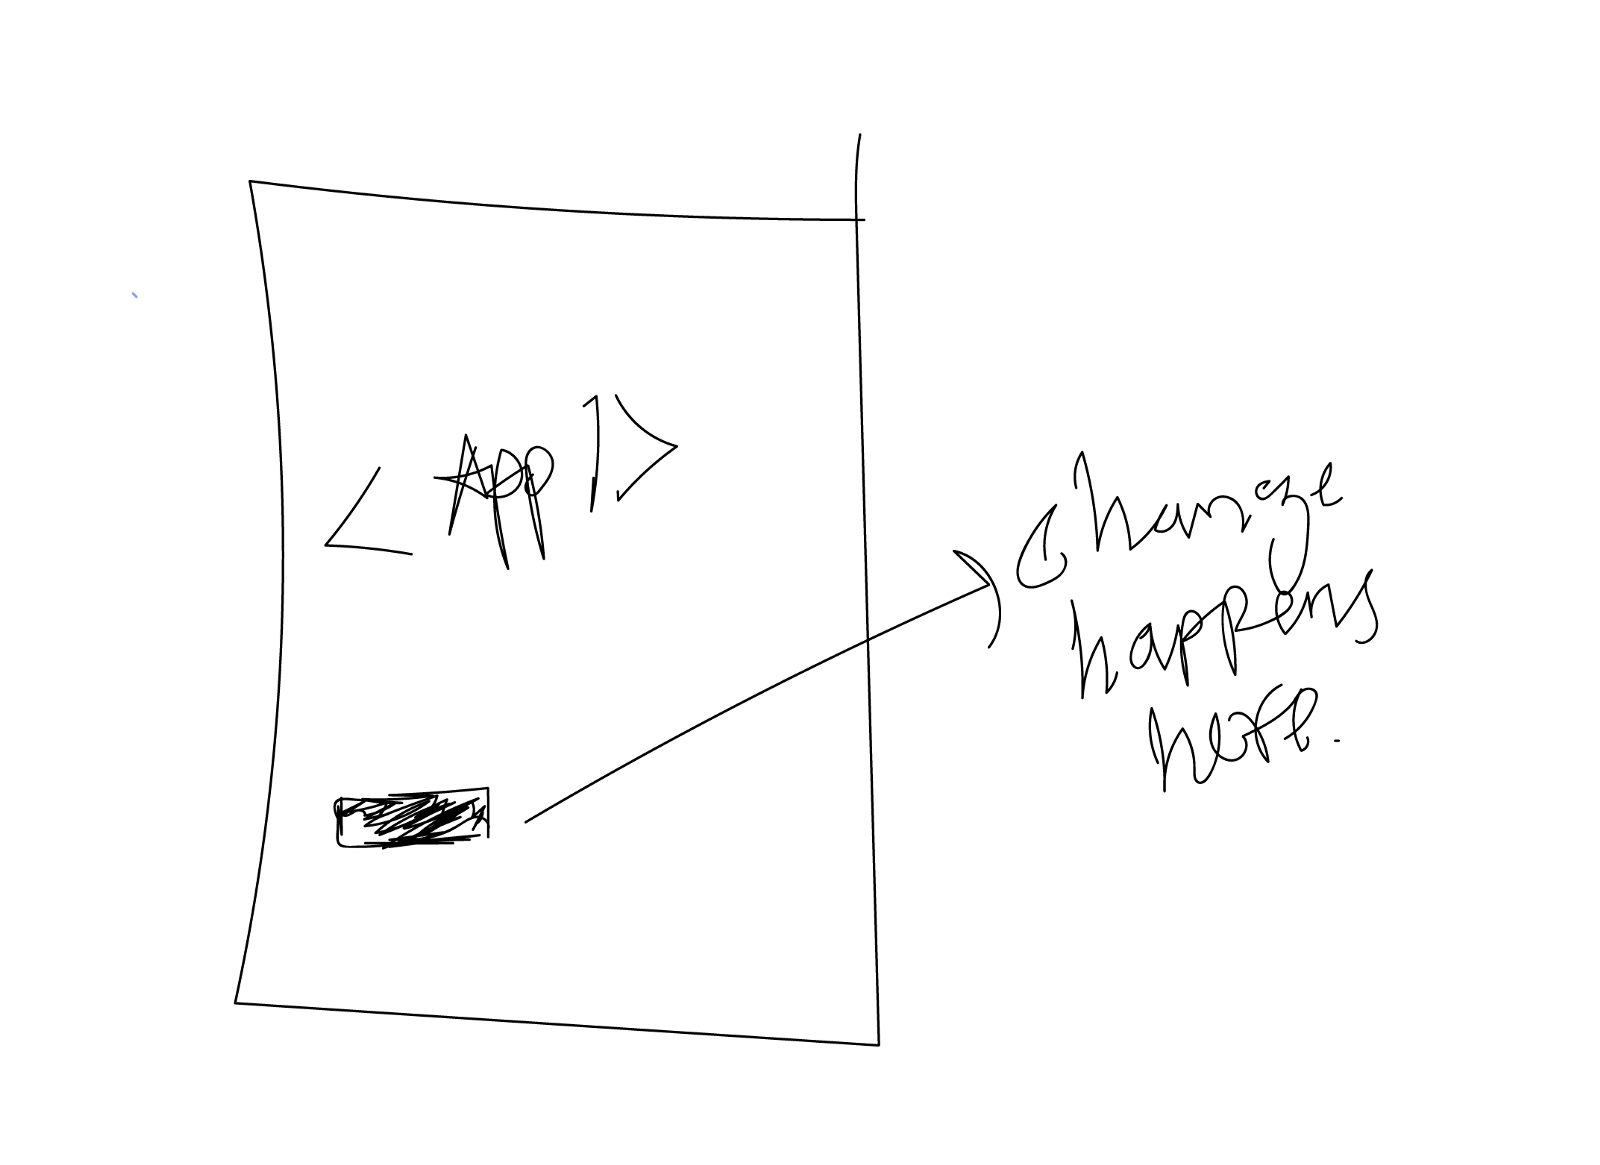 < App />
Change
happens
here.